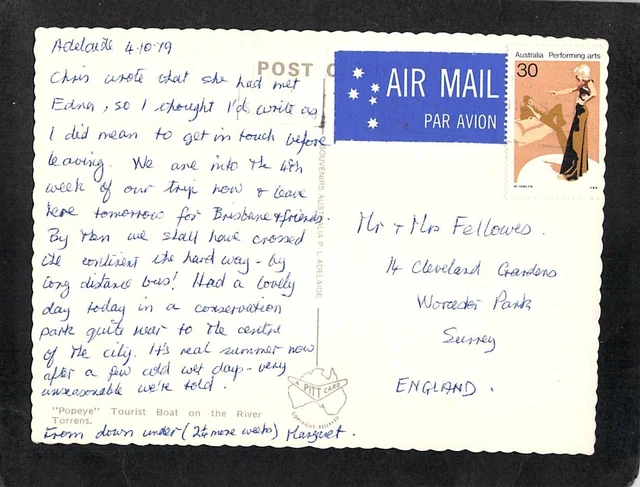 Adelaide 4.10.79
Chris wrote that she had met
Edna, so I thought I'd write as
I did mean to get in touch before
leaving. We are into the 4th
week of our trip now & leave
here tomorrow for Brisbane & friends.
By then we shall have crossed
the continent the hard way - by
long distance bus! Had a lovely
day today in a conservation
park quite near to the centre
of the city. It's real summer now
after a few cold wet days - very
unseasonable we're told.
"Popeye" Tourist Boat on the River
Torrens.
From down under (2¼ more weeks) Margaret.
POST
SOUVENIRS AUSTRALIA P L ADELAIDE
A PITT CARD
COPYRIGHT RESERVED
AIR MAIL
PAR AVION
Australia Performing arts
30
Mr + Mrs Fellowes.
14 Cleveland Gardens
Worcester Park
Surrey
ENGLAND.